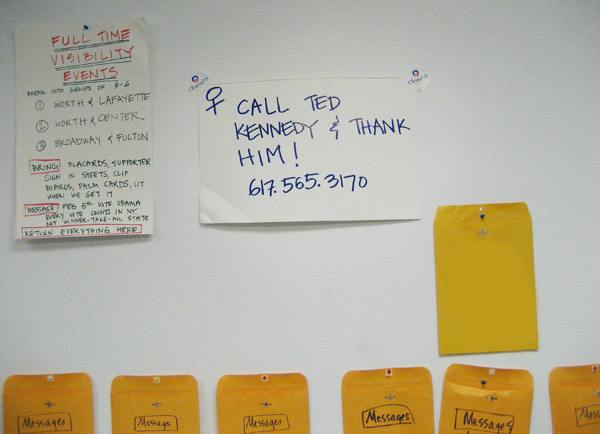 FULL TIME
VISIBILITY
EVENTS
BREAK INTO GROUPS OF 3-6
1 WORTH & LAFAYETTE
2 WORTH & CENTER
3 BROADWAY & FULTON
BRING PLACARDS, SUPPORTER
SIGN IN SHEETS, CLIP
BOARDS, PALM CARDS, LIT
WHEN WE GET IT
MESSAGE FEB 5TH VOTE OBAMA
EVERY VOTE COUNTS IN NY
NOT WINNER-TAKE-ALL STATE
RETURN EVERYTHING HERE
♀ CALL TED
KENNEDY & THANK
HIM!
617.565.3170
Messages
Messages
Messages
Messages
Messages
Messages